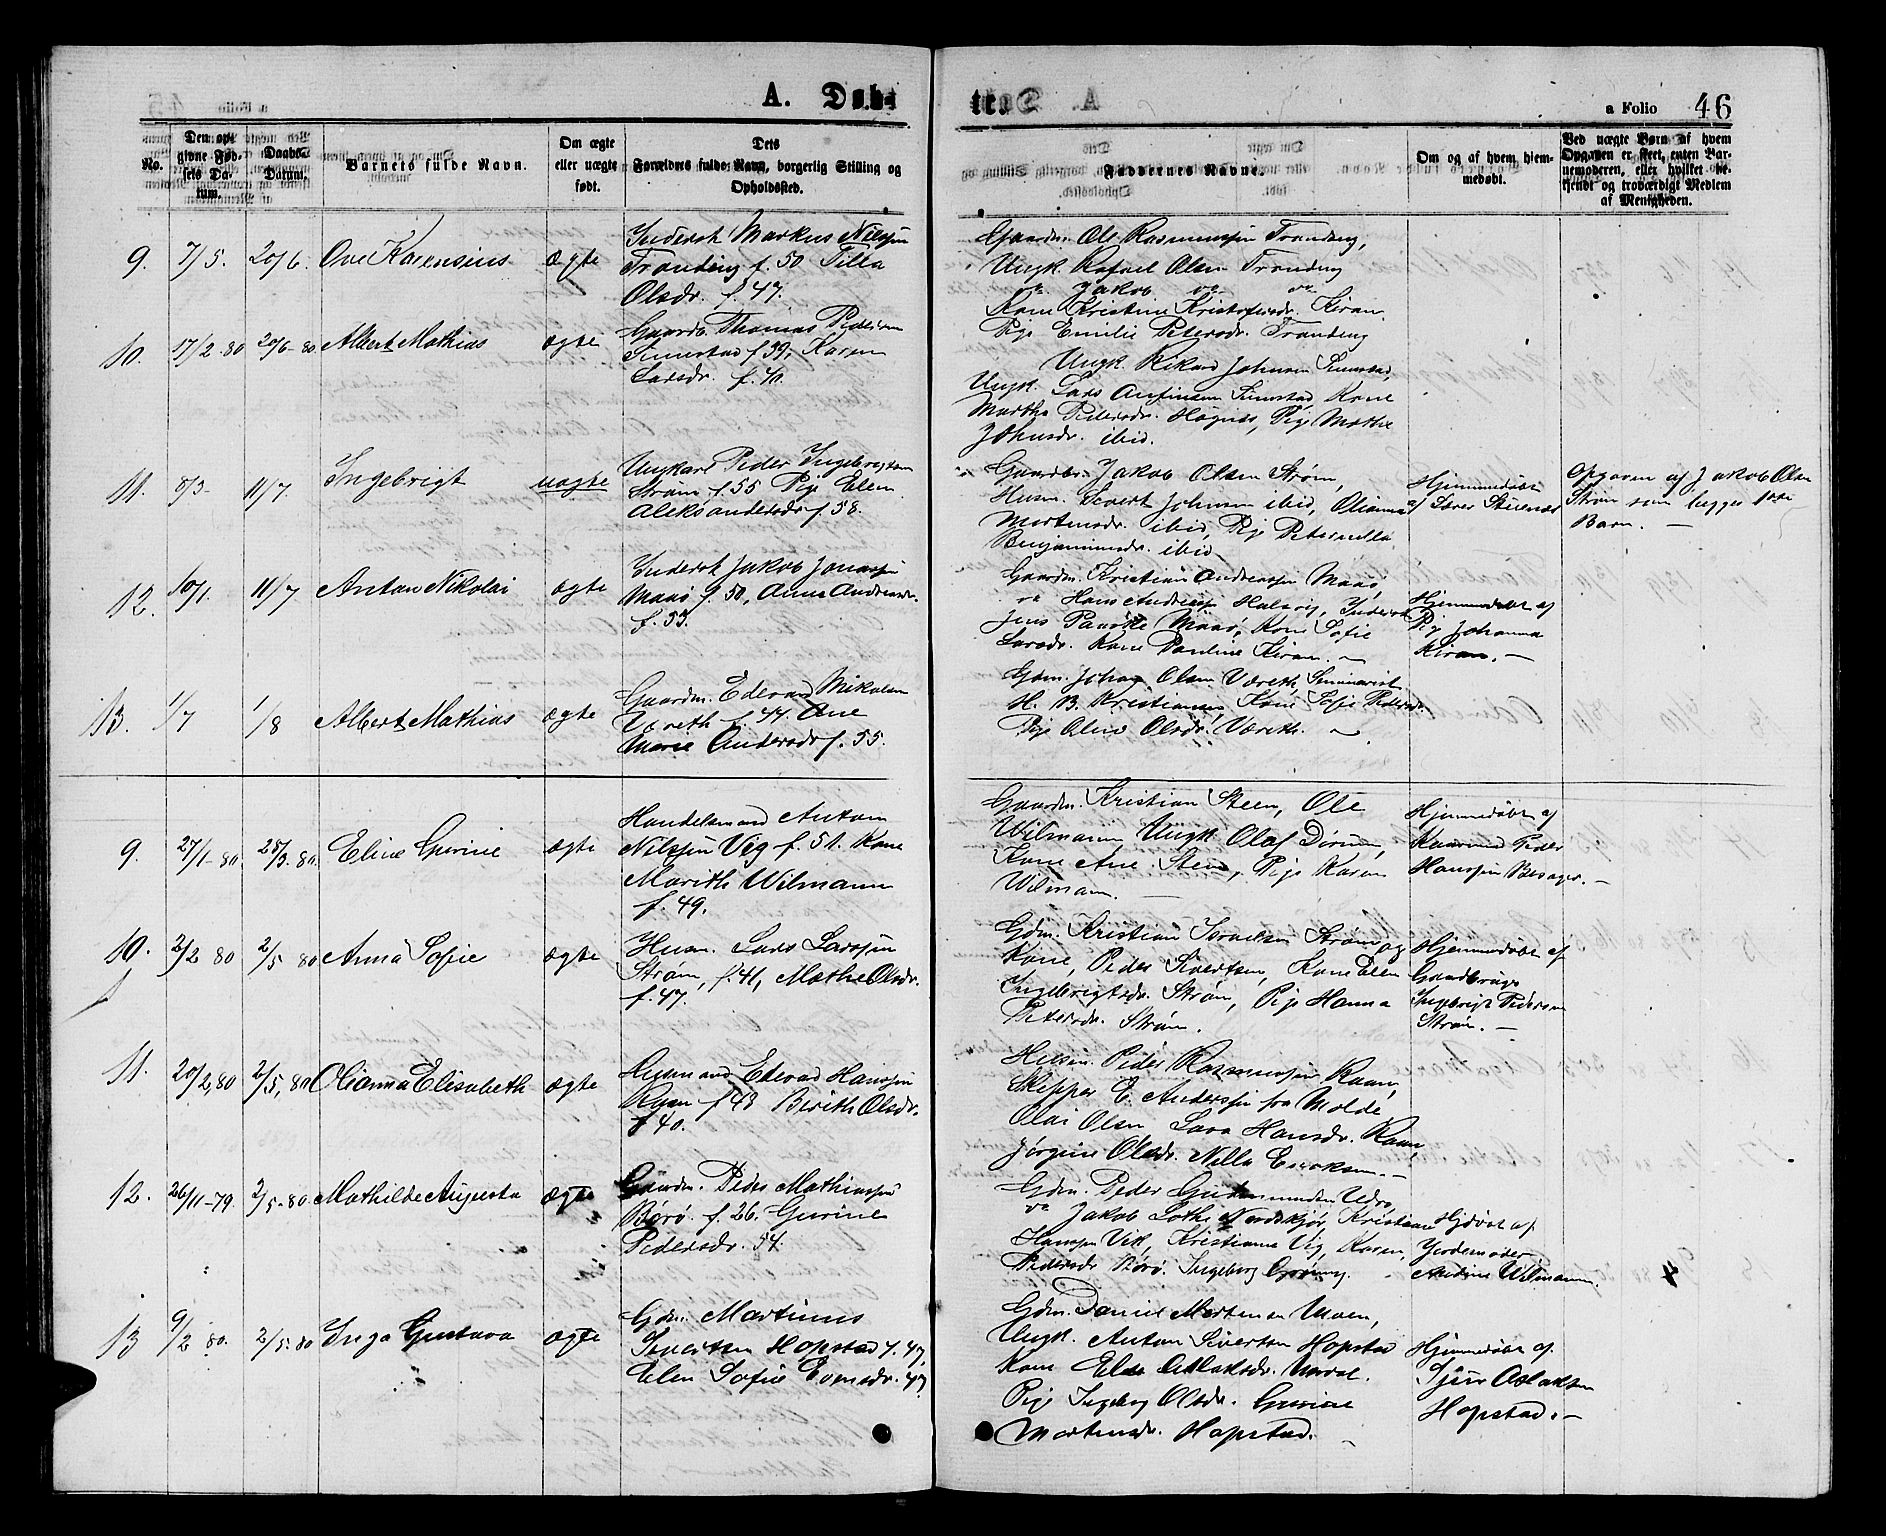 A. Døbte
a Folio 46
No.
Den opgivne Fødsels Datum.
Daabs-Datum.
Barnets fulde Navn.
Om ægte eller uægte født.
Dets Forældres fulde Navn, borgerlig Stilling og Opholdssted.
Faddernes Navne.
Om og af hvem hjemmedøbt.
Ved uægte Børn af hvem Opgaven er skeet, enten Barnemoderen, eller hvilket bekjendt og troværdigt Medlem af Menigheden.
9. 7/5. 20/6. Ove Karensius ægte
Inderst Markus Nilssen
f. 50
Olsdr. f. 47.
Gaardm. Ole Rasmussen
Ungk. Rafael Olsen
Jakob
Kone Kristine Kristofersdr. Kiran
Pige Emilie Petersdr.
10. 17/2-80 20/6-80 Albert Mathias ægte
Gaardb. Thomas Pedersen
f. 39, Karen
Larsdr. f. 40.
Ungk. Rikard Johnsen
Ungk. Lars
Martha Pedersdr. Pige Mathe
Johnsdr. ibid.
11. 8/3- 11/7. Ingebrigt uægte
Ungkarl Peder Ingebrigtsen
Strøm f. 55 Pige Elen
Aleksandersdr f. 58.
Gaardbr. Jakob Olsen Strøm,
Husm. Sivert Johnsen ibid, Olianna
Mortensdr. ibid, Pige Peternella
Benjaminsdr. ibid
Hjemmedøbt
af Lærer
Opgaven af Jakob Olsen
Strøm som begges 1ste
Barn. -
12. 10/1. 11/7 Anton Nikolai ægte
Inderst Jakob Jonassen
Maasø f. 50, Anna Andreasdr.
f. 53.
Gaardm. Kristian Andreassen Maasø
Hans Andreas Inderst
Jens Maasø, Kone Sofie
Larsdr. Kone Pauline Kiran. -
Hjemmedøbt af
Pige Johanna
Kiran. -
13. 1/7 1/8 Albert Mathias ægte
Gaardm. Edevard Mikalsen
Væreth f. 44. Ane
Marie Andersdr f. 55.
Gdm. Johan Olsen Væreth, Seminarist
H. B. Kristiansen, Kone Sofie Pedersdr.
Pige Oline Olsdr. Væreth. -
9. 27/1-80. 28/3-80. Eline Gurine ægte
Handelsmand Anton
Nilssen Vig f. 51. Kone
Marith Wilmann
f. 49.
Gaardm. Kristian Steen, Ole
Wilmann Ungk. Olaf
Kone Ane Steen, Pige Karen
Wilmann. -
Hjemmedøbt af
Kaarmand Peder
Hanssen Besager. -
10. 2/2 80 2/5 80 Anna Sofie ægte
Husm. Lars Larssen
Strøm, f. 41, Mathe Olsdr.
f. 47.
Gdm. Kristian Strøm og
Kone, Peder Sivertsen, Kone Elen
Ingebrigtsdr. Strøm, Pige Hanna
Petersdr. Strøm.
Hjemmedøbt af
Gaardbruger
Ingebrigt Pedersen
Strøm. -
11. 20/2,80 2/5,80 Olianna Elisabeth ægte
Husmand Edevard Hanssen
Raan f 48 Berith Olsdr.
f 40.
Husm. Peder Rasmussen Raan,
Skipper E. Anderssen fra Molde
Olai Olsen, Lava Hansdr. Raan,
Jørgine Olsdr. Nella Eriksen. -
12. 26/11-79 2/5-80 Mathilde Augusta ægte
Gaardm. Peder Mathiassen
Børø. f. 26. Gurine
Pedersdr. 54.
Gdm. Peder Gudmundsen
Jakob Kristian
Hanssen Vik, Kristianna Vig, Karen
Pedersdr Børø. Ingeborg
Hjdøbt af
Jordemoder
Andrine Wilmann.
13 9/2 80. 2/5-80 Inga Gustava ægte
Gdm. Martinus
Sivertsen Hopstad f. 47,
Elen Sofie Evensdr. 47
Gdm. Daniel Mortensen
Ungk. Anton Sivertsen Hopstad
Kone
Pige Ingeborg Olsdr. Gurine
Mortensdr. Hopstad.
Hjemmedøbt af
Hopstad. -